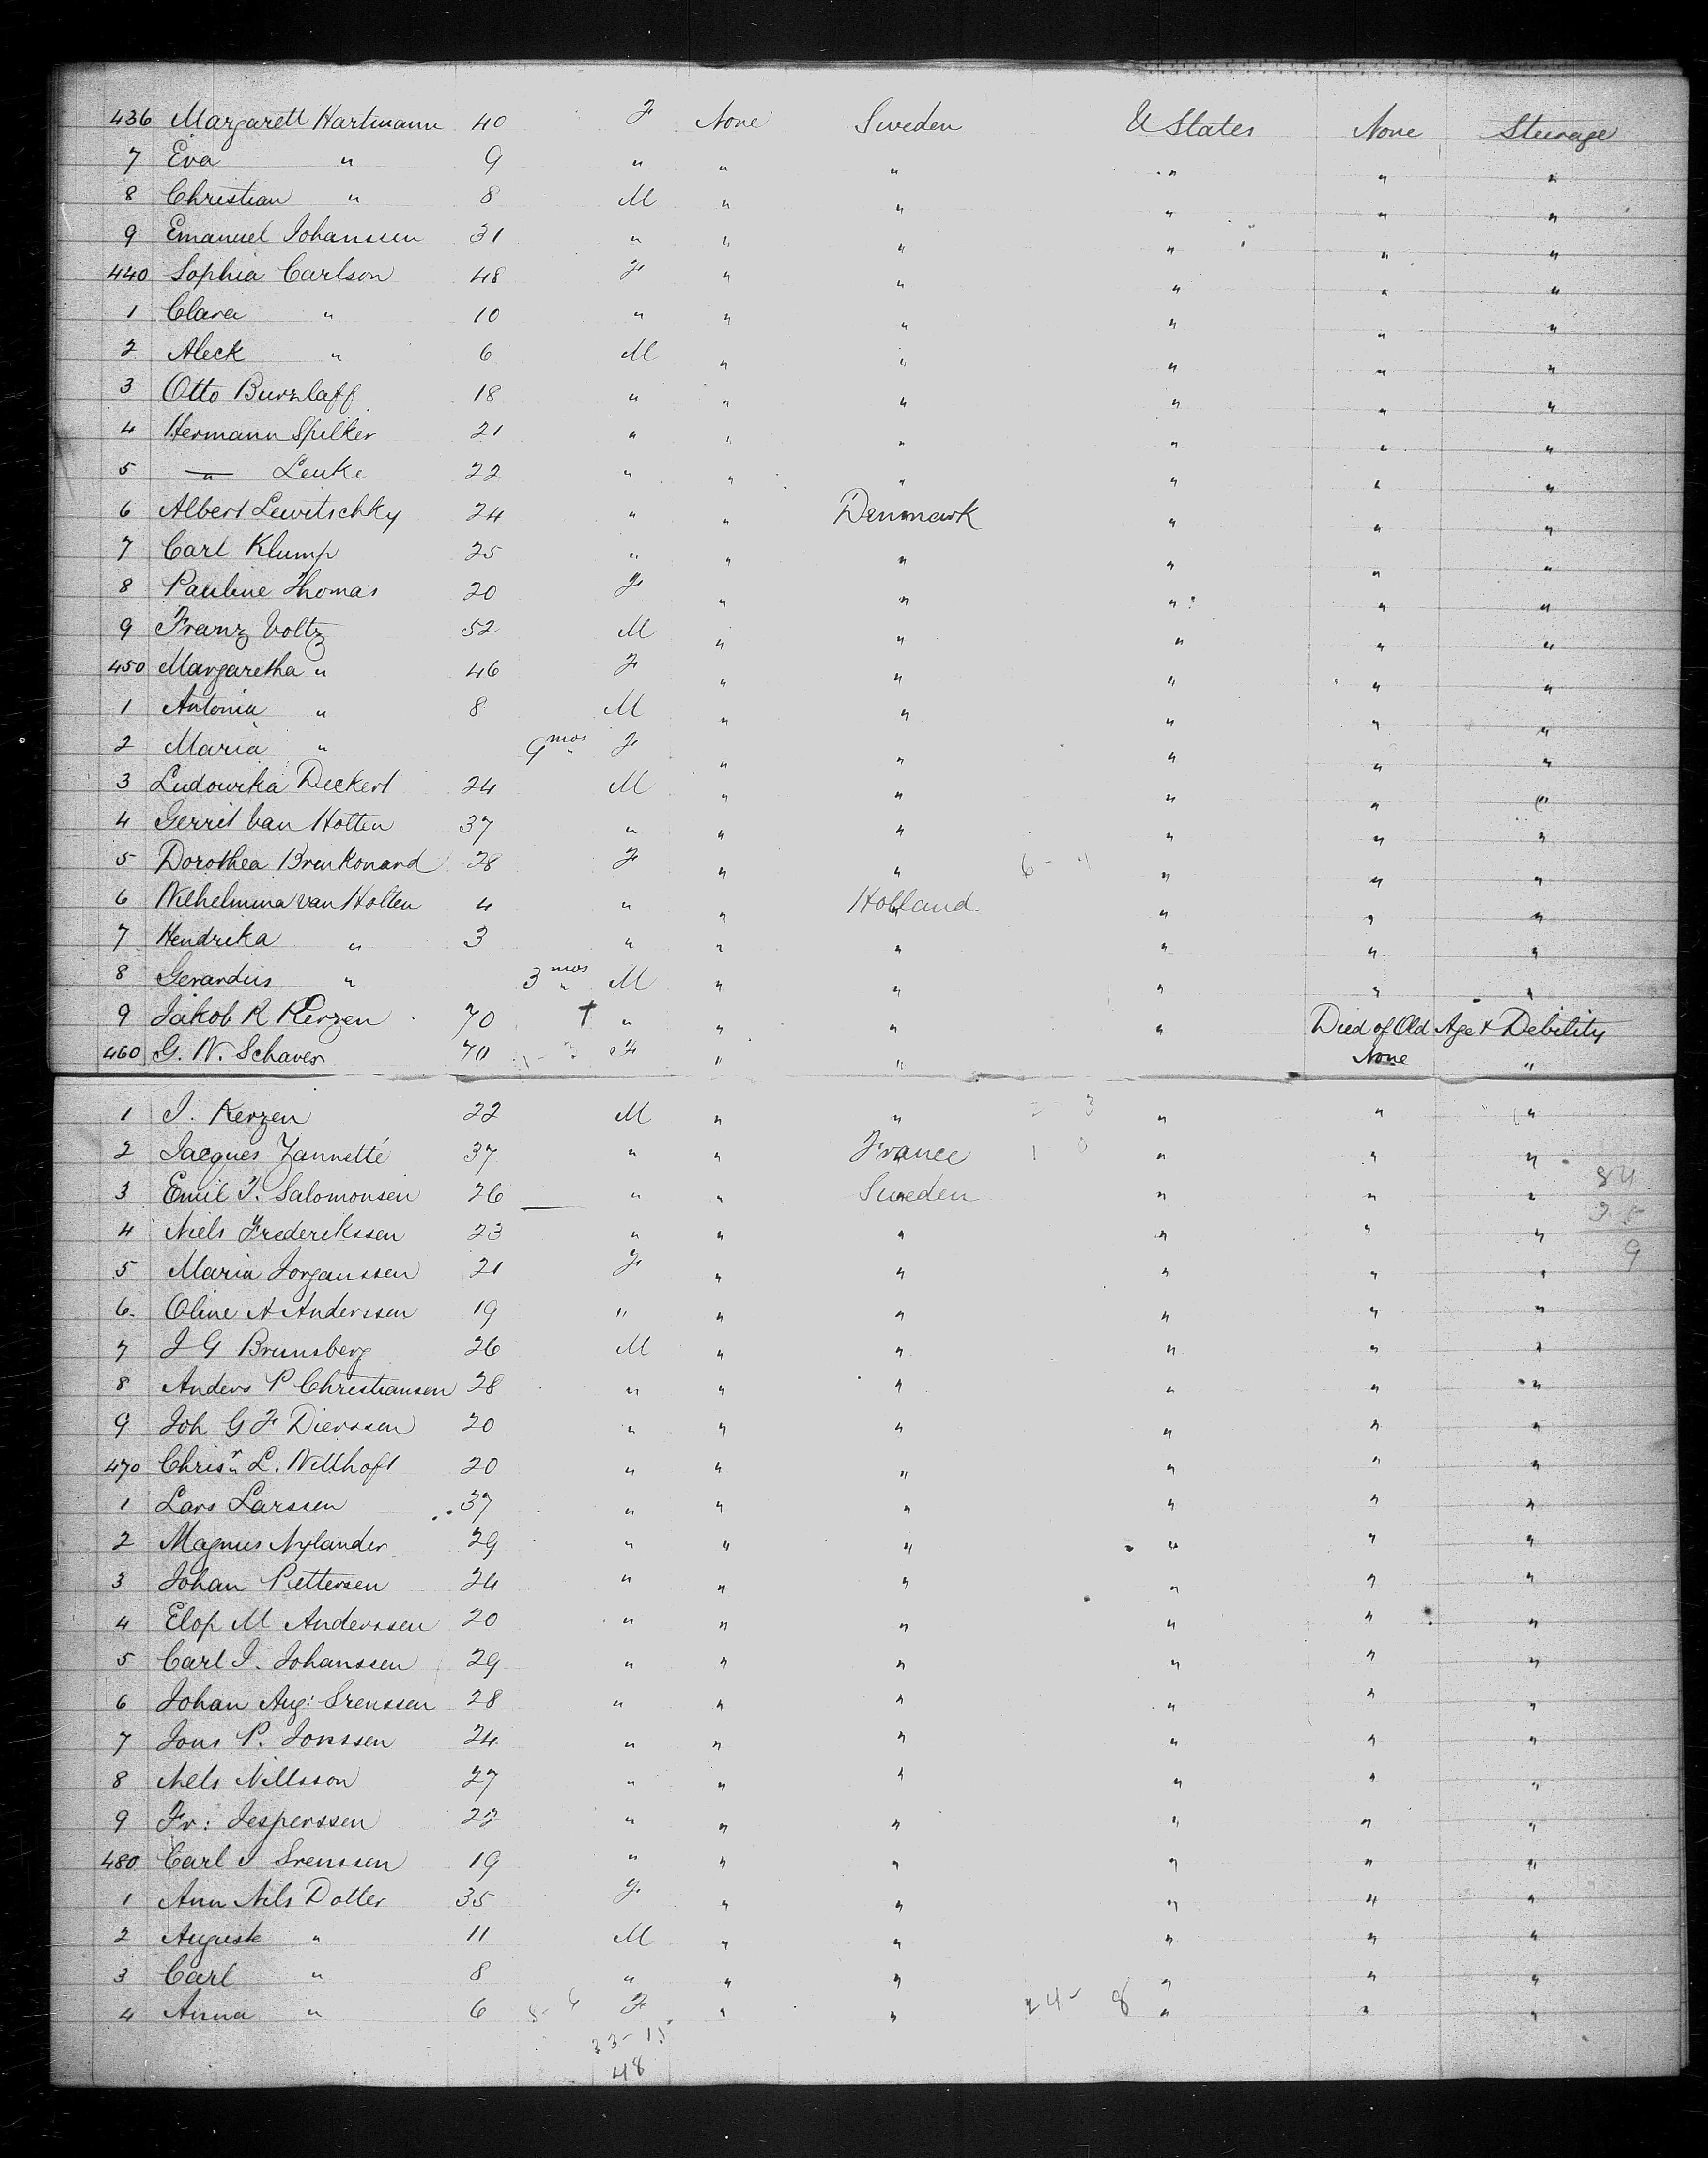 436 Margarett Hartmann 40 F None Sweden U States None Steerage
7 Eva " 9 " " " " " "
8 Christian " 8 M " " " " "
9 Emanuel Johanssen 31 " " " " " "
440 Sophia Carlson 48 F " " " " "
1 Clara " 10 " " " " " "
2 Aleck " 6 M " " " " "
3 Otto Burzlaff 18 " " " " " "
4 Hermann Spilker 21 " " " " " "
5 " Leuke 22 " " " " " "
6 Albert Lewitschky 24 " " Denmark " " "
7 Carl Klump 25 " " " " " "
8 Pauline Thomas 20 F " " " " "
9 Franz Voltz 52 M " " " " "
450 Margaretha " 46 F " " " " "
1 Antonia " 8 M " " " " "
2 Maria " 9 mos F " " " " "
3 Ludowika Deckert 24 M " " " " "
4 Gerrit Van Holten 37 " " " " " "
5 Dorothea Breukonard 28 F " " 6 - 4 " " "
6 Wilhelmina van Holten 4 " " Holland " " "
7 Hendrika " 3 " " " " " "
8 Gerardus " 3 mos M " " " " "
9 Jakob R Kerzen 70 † " " " " Died of Old Age & Debility
460 G. N. Schaver 70 - 3 F " " None "
1 J. Kerzen 22 M " " 2 - 3 " " "
2 Jacques Zannetté 37 " " France 1 0 " " "
3 Emil T. Salomonsen 26 " " Sweden " " " 84
4 Niels Frederikssen 23 " " " " " "
5 Maria Jorganssen 21 F " " " " " 9
6. Oline A Anderssen 19 " " " " " "
7 J G Brunsberg 26 M " " " " "
8 Anders P Christiansen 28 " " " " " "
9 Joh G F Dierssen 20 " " " " " "
470 Chrisr L. Nillhoft 20 " " " " " "
1 Lars Larssen 37 " " " " " "
2 Magnus Nylander 29 " " " " " "
3 Johan Pettersen 24 " " " " " "
4 Elof M Anderssen 20 " " " " " "
5 Carl J. Johanssen 29 " " " " " "
6 Johan Aug: Srenssen 28 " " " " " "
7 Jons P. Jonssen 24 " " " " " "
8 Nels Nillsson 27 " " " " " "
9 Fr: Jesperssen 22 " " " " " "
480 Carl J Srenssen 19 " " " " " "
1 Ann Nils Dotter 35 F " " " " "
2 August " 11 M " " " " "
3 Carl " 8 " " " " " "
4 Anna " 6 8 - 6 F " " 24 - 8 " " "
33 - 15
48